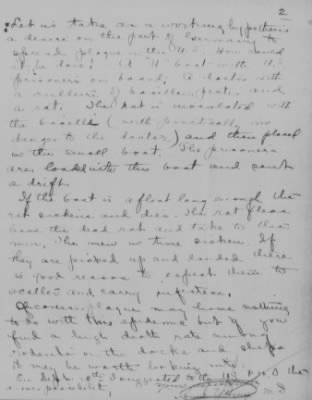 2
Let us take as a working hypothesis
a desire on the part of Germany to
spread plague in the U.S. How would
it be done? A U boat with U.S.
prisoners on board. A doctor with
a culture of bacillus pestis and
a rat. The rat is inoculated with
the bacilli (with practically no
danger to the doctor) and then placed
in the small boat. The prisoners
are loaded into this boat and sent
a drift.
If the boat is afloat long enough the
rat sickens and dies. The rat fleas
leave the dead rat and take to the
men. The men in time sicken. If
they are picked up and landed there
is good reason to expect them to
and carry infection.
Of course plague may have nothing
to do with this epidemic but if you
find a high death rate among
rodents on the docks and ships
it may be worth looking into.
On Sept. I suggested to the U.S. P.H.S. this
same possibility,
M.D.